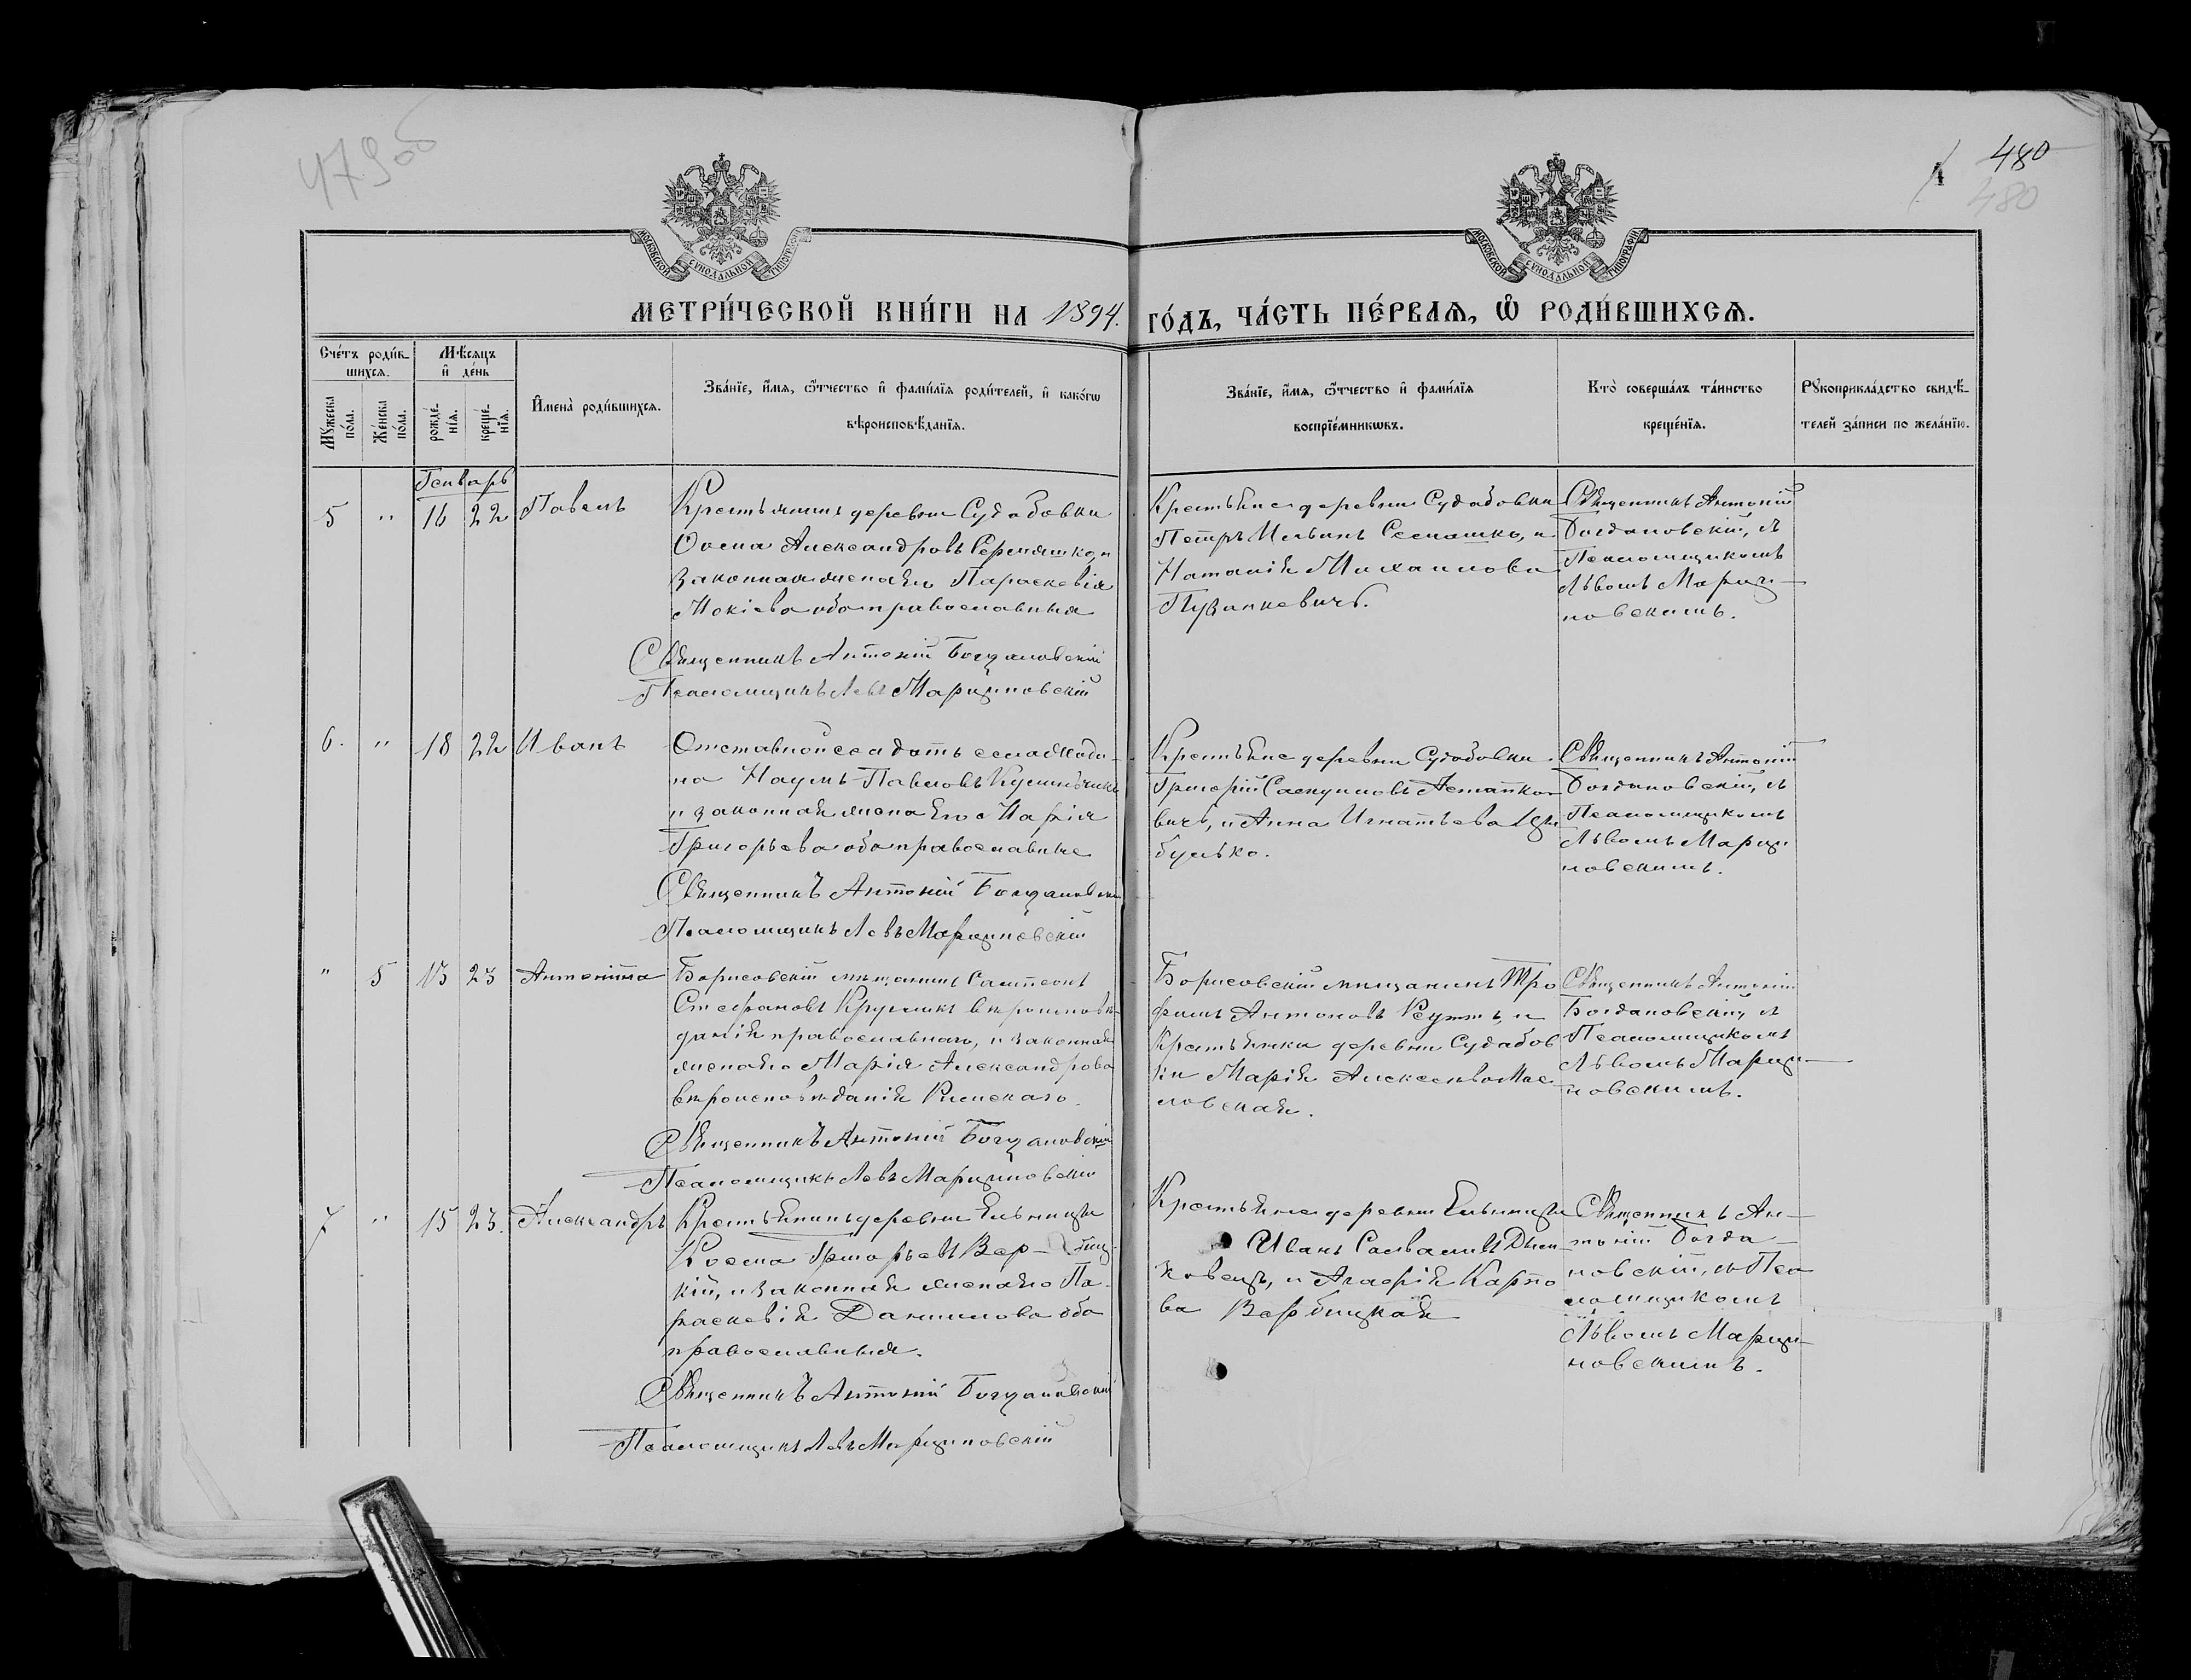 479об
480
480
МОСКОВСКОЙ СѴНОДАЛЬНОЙ ТИПОГРАФІИ
МОСКОВСКОЙ СѴНОДАЛЬНОЙ ТИПОГРАФІИ
МЕТРИ́ЧЕСКОЙ КНИ́ГИ НА 1894. ГО́ДЪ, ЧА́СТЬ ПЕ́РВАѦ, Ѡ РОДИ́ВШИХСѦ.
Сче́тъ роди́в-
шихсѧ.
Мꙋ́жеска по́ла.
Же́нска по́ла.
Мѣ́сяцъ
и де́нь
рожде́-
нїѧ.
креще́-
нїѧ.
Имена̀ роди́вшихсѧ.
Зва́нїе, и́мѧ, ѻ́тчество и фами́лїѧ роди́телей, и како́гѡ
вѣроисповѣ́данїѧ.
Зва́нїе, и́мѧ, ѻ́тчество и фами́лїѧ
воспрїе́мникѡвъ.
Кто̀ соверша́лъ та́инство
креще́нїѧ.
Рꙋкоприкла́дство свидѣ́-
телей за́писи по жела́нїю.
Генварь
5 " 16 22 Павелъ
Крестьянинъ деревни Судобовки
Ѳома Александровъ и
законная жена его Параскевія
Мокіева оба православныя
Священникъ Антоній Богдановскій
Псаломщикъ Левъ Марциновскій
Крестьяне деревни Судобовки
Петръ Ильинъ Семашко, и
Наталія Михаилова
Пузынкевичъ.
Священникъ Антоній
Богдановскій, съ
Псаломщикомъ
Львомъ Марци-
новскимъ.
6. " 18 22 Иванъ
Отставной солдатъ
Наумъ Павловъ
и законная жена его Марія
Григорьева оба православные
Священникъ Антоній Богдановскій
Псаломщикъ Левъ Марциновскій
Крестьяне деревни Судобовки
Григорій
вичъ, и Анна Игнатьева
булько.
Священникъ Антоній
Богдановскій, съ
Псаломщикомъ
Львомъ Марци
новскимъ.
" 5 13 23 Антонина
Борисовскій мѣщанинъ Сампсонъ
Стефановъ Кругликъ вѣроисповѣ
данія православнаго, и законная
жена его Марія Александрова
вѣроисповѣданія Римскаго.
Священникъ Антоній Богдановскій
Псаломщикъ Левъ Марциновскій
Борисовскій мѣщанинъ Тро
фимъ Антоновъ Реутъ, и
Крестьянка деревни Судобов
ки Марія Алексѣева Мас
ловская.
Священникъ Антоній
Богдановскій, съ
Псаломщикомъ
Львомъ Марци-
новскимъ.
7 " 15 23. Александръ
Крестьянинъ деревни Ельницы
Косма Григорьевъ Вер- биц-
кій, и законная жена его Па-
раскевія Данилова оба
православныя.
Священникъ Антоній Богдановскій
Псаломщикъ Левъ Марциновскій
Крестьяне деревни Ельницы
Иванъ
ковецъ, и Агафія Карпо
ва Вербицкая
Священникъ Ан-
тоній Богда-
новскій, съ Пса
ломщикомъ
Львомъ Марци-
новскимъ.